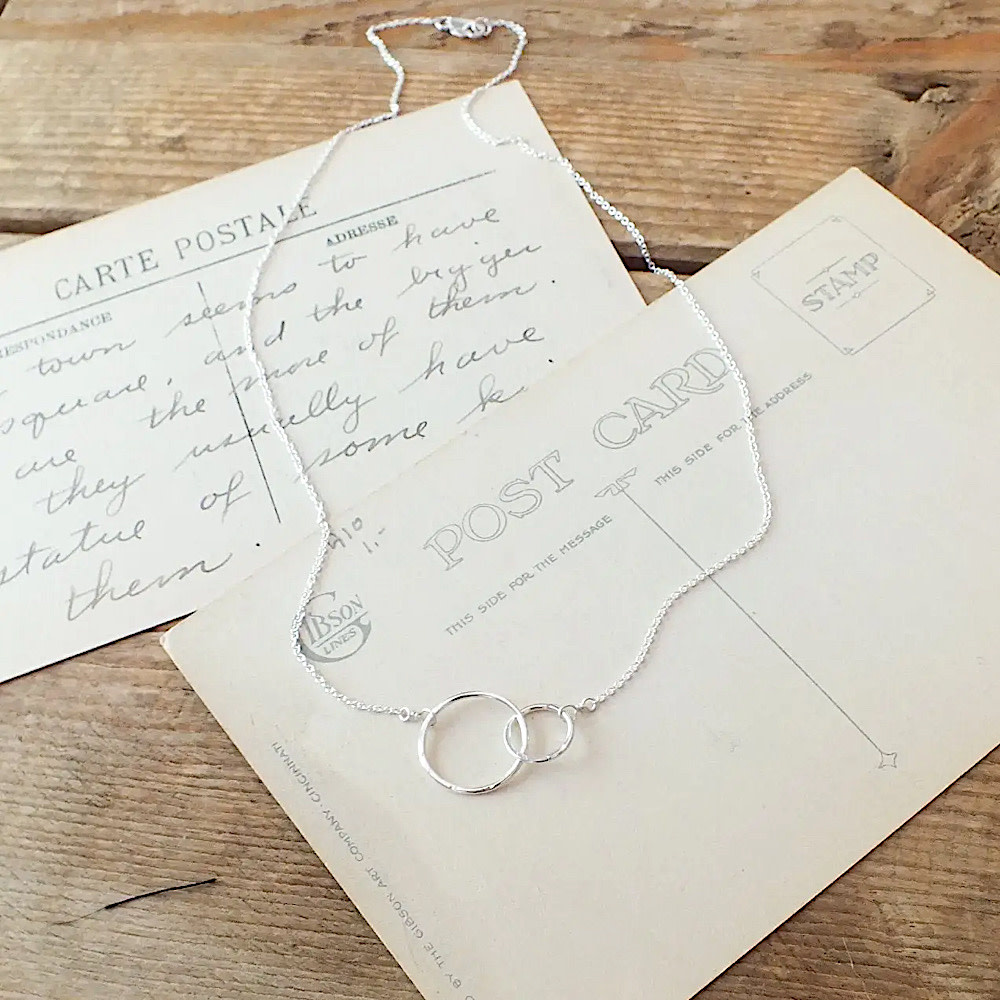 CARTE POSTALE
RESPONDANCE
ADRESSE
to have
town seems
square, and the bigger
are the more of them.
they usually have
statue of some
them.
STAMP
POST CARD
THIS SIDE FOR THE MESSAGE
THIS SIDE FOR THE ADDRESS
GIBSON
LINES
D BY THE GIBSON ART COMPANY·CINCINNATI